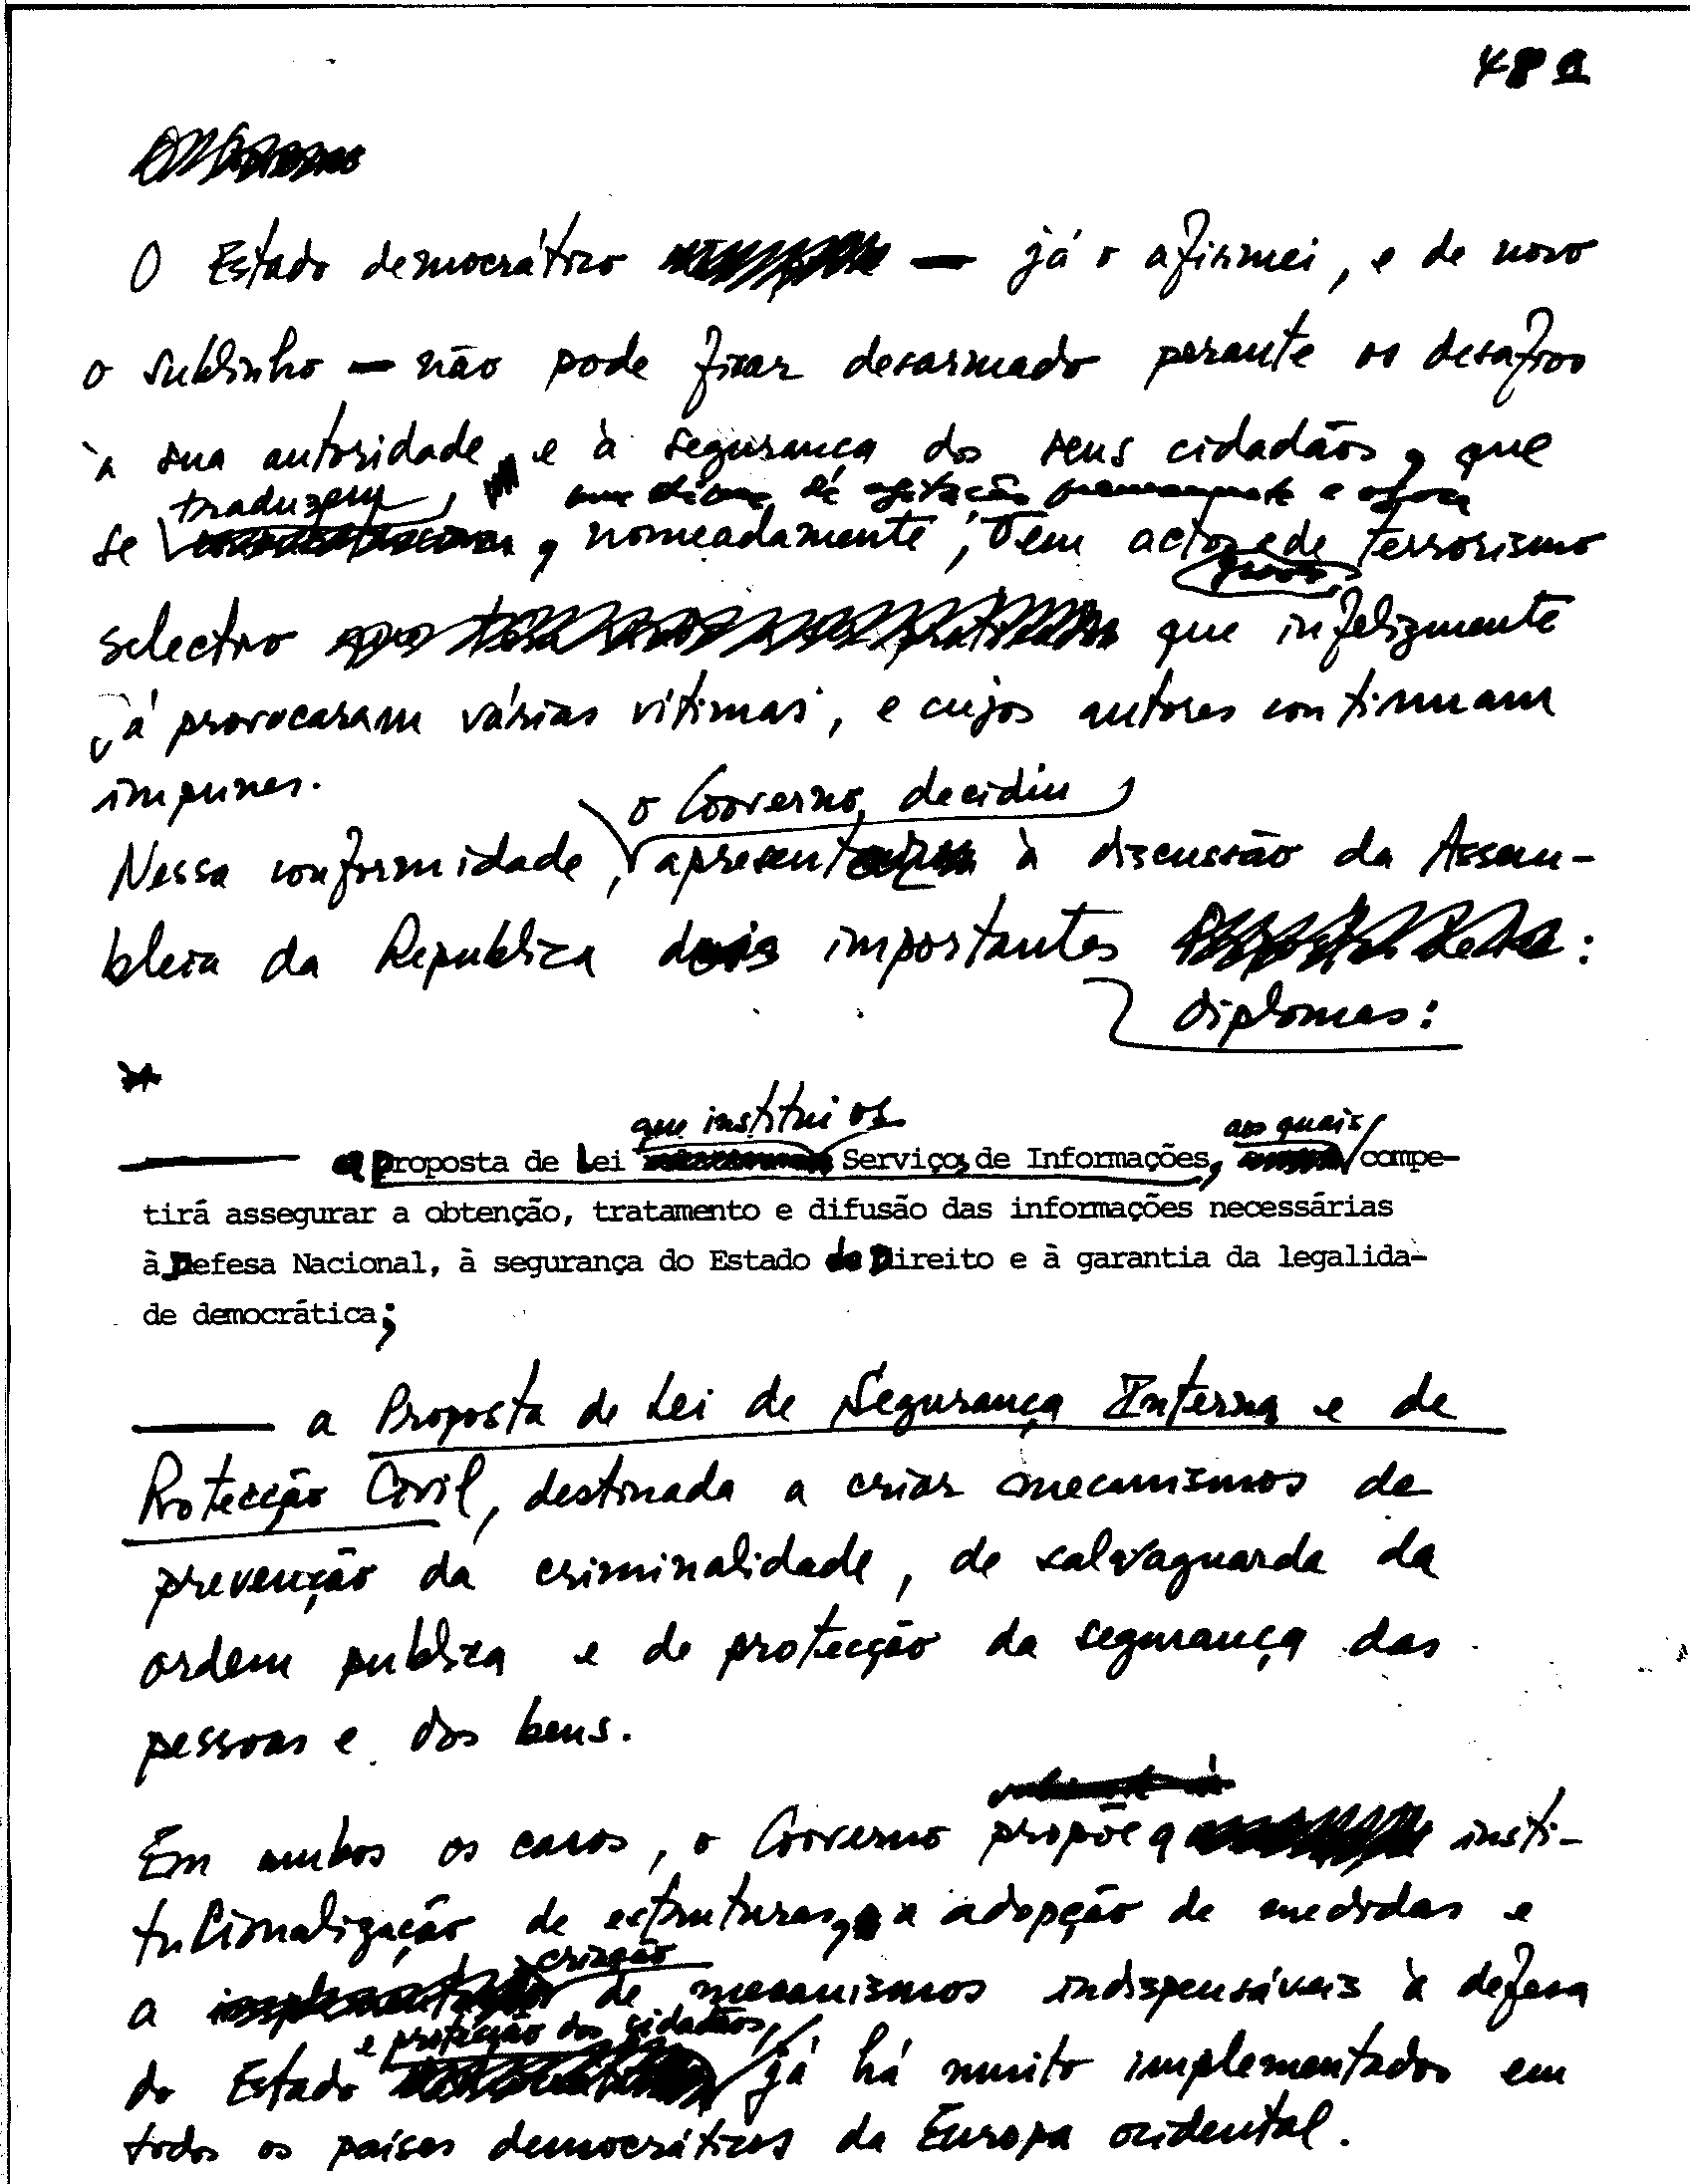 48 a
O Estado democrático — já o afirmei, e de novo
o sublinho — não pode ficar desarmado perante os desafios
à sua autoridade, e à segurança dos seus cidadãos, que
traduzem,
se , nomeadamente, em actos de terrorismo
selectivo que infelizmente
já provocaram várias vítimas, e cujos autores continuam
impunes.
o Governo decidiu
Nessa conformidade, apresentar à discussão da Assem-
bleia da Republica dois importantes :
diplomas:
que institui os
aos quais
a Proposta de Lei Serviços de Informações, compe-
tirá assegurar a obtenção, tratamento e difusão das informações necessárias
à Defesa Nacional, à segurança do Estado de Direito e à garantia da legalida-
de democrática;
— a Proposta de Lei de Segurança Interna e de
Protecção Civil, destinada a criar mecanismos de
prevenção da criminalidade, de salvaguarda da
ordem publica e de protecção da segurança das
pessoas e dos bens.
Em ambos os casos, o Governo propõe a insti-
tucionalização de estruturas, a adopção de medidas e
criação
a de mecanismos indispensáveis à defesa
e protecção dos cidadãos,
do Estado já há muito implementados em
todos os países democráticos da Europa ocidental.